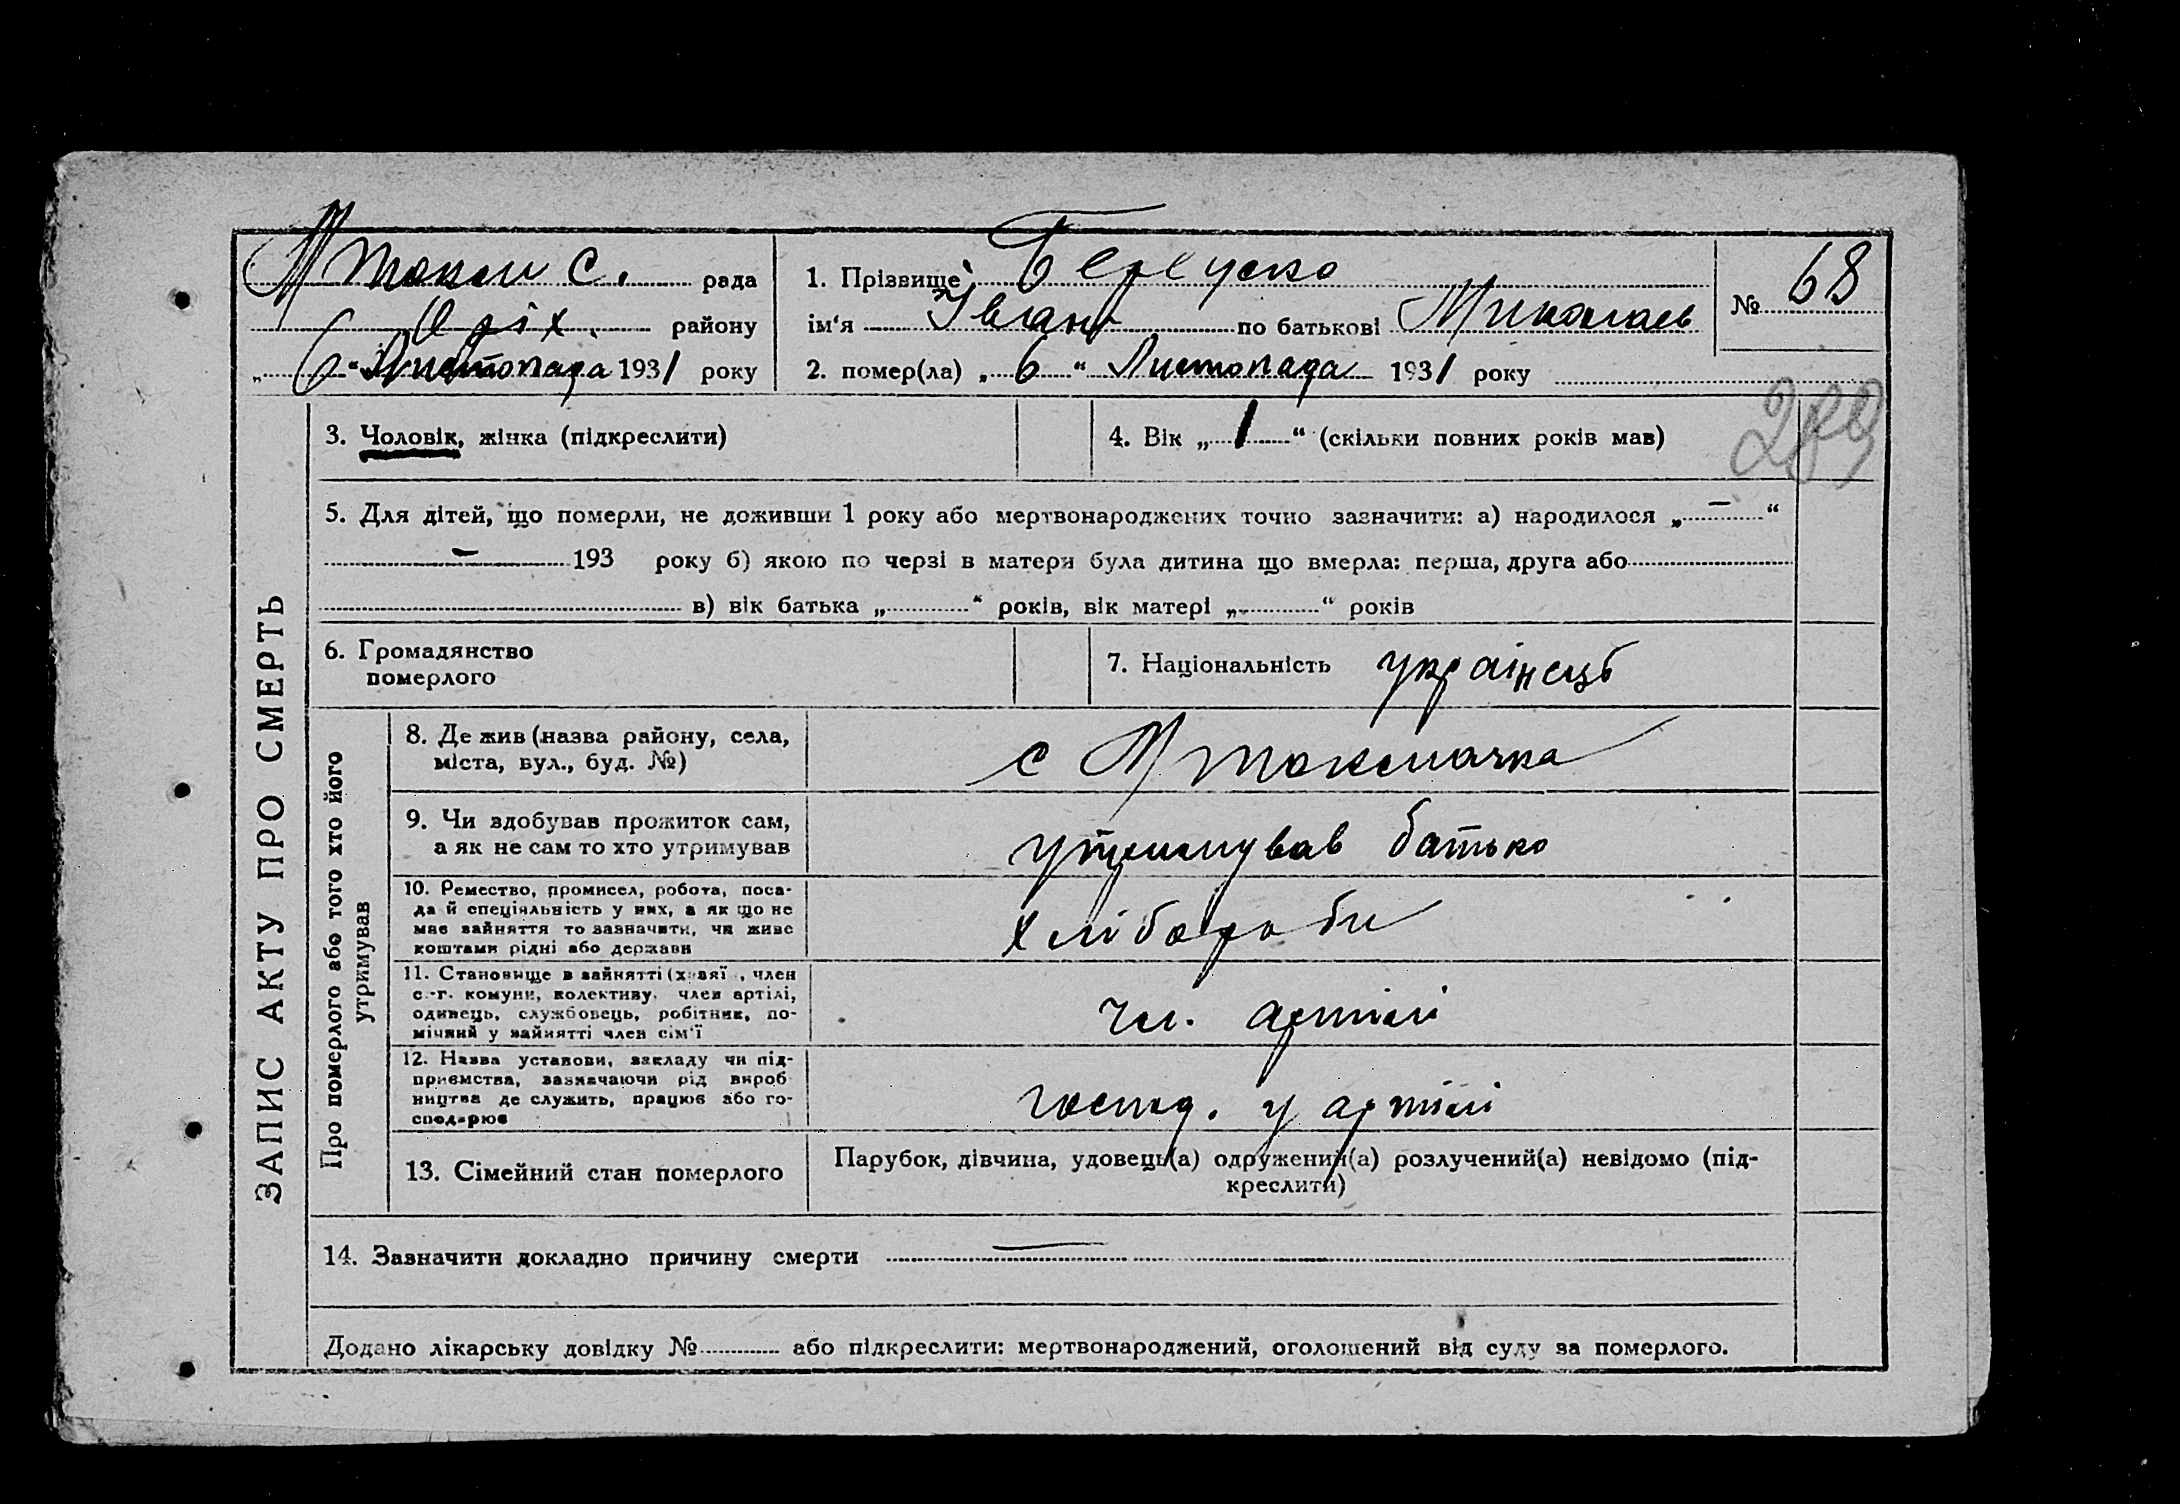 ЗАПИС АКТУ ПРО СМЕРТЬ
М Токм с. рада
Оріх. району
„ 6 “ Листопада 1931 року
1. Прізвище Берецско
ім‘я Іван по батькові Миколаєв
№ 68
2. помер(ла) „ 6 “ Листопада 1931 року
289
3. Чоловік, жінка (підкреслити)
4. Вік „ 1 “ (скільки повних років мав)
5. Для дітей, що померли, не доживши 1 року або мертвонароджених точно зазначити: а) народилося „ – “
– 193 року б) якою по черзі в матери була дитина що вмерла: перша, друга або
в) вік батька „ “ років, вік матері „ “ років
6. Громадянство
померлого
7. Національність українець
Про померлого або того хто його
утримував
8. Де жив (назва району, села,
міста, вул., буд. №)
с М Токмачка
9. Чи здобував прожиток сам,
а як не сам то хто утримував
утримував батько
10. Ремество, промисел, робота, поса-
да й спеціяльність у них, а як що не
має зайняття то зазначити, чи живе
коштами рідні або держави
хліборобн
11. Становище в зайнятті (хазяї , член
с.-г. комуни, колективу, член артілі,
одинець, службовець, робітник, по-
мічний у зайнятті член сім‘ї
чл. артілі
12. Назва установи, закладу чи під-
приємства, зазначаючи рід вироб
ництва де служить, працює або го-
сподарює
господ. у артілі
13. Сімейний стан померлого
Парубок, дівчина, удовець(а) одружений(а) розлучений(а) невідомо (під-
креслити)
14. Зазначити докладно причину смерти —
Додано лікарську довідку № або підкреслити: мертвонароджений, оголошений від суду за померлого.